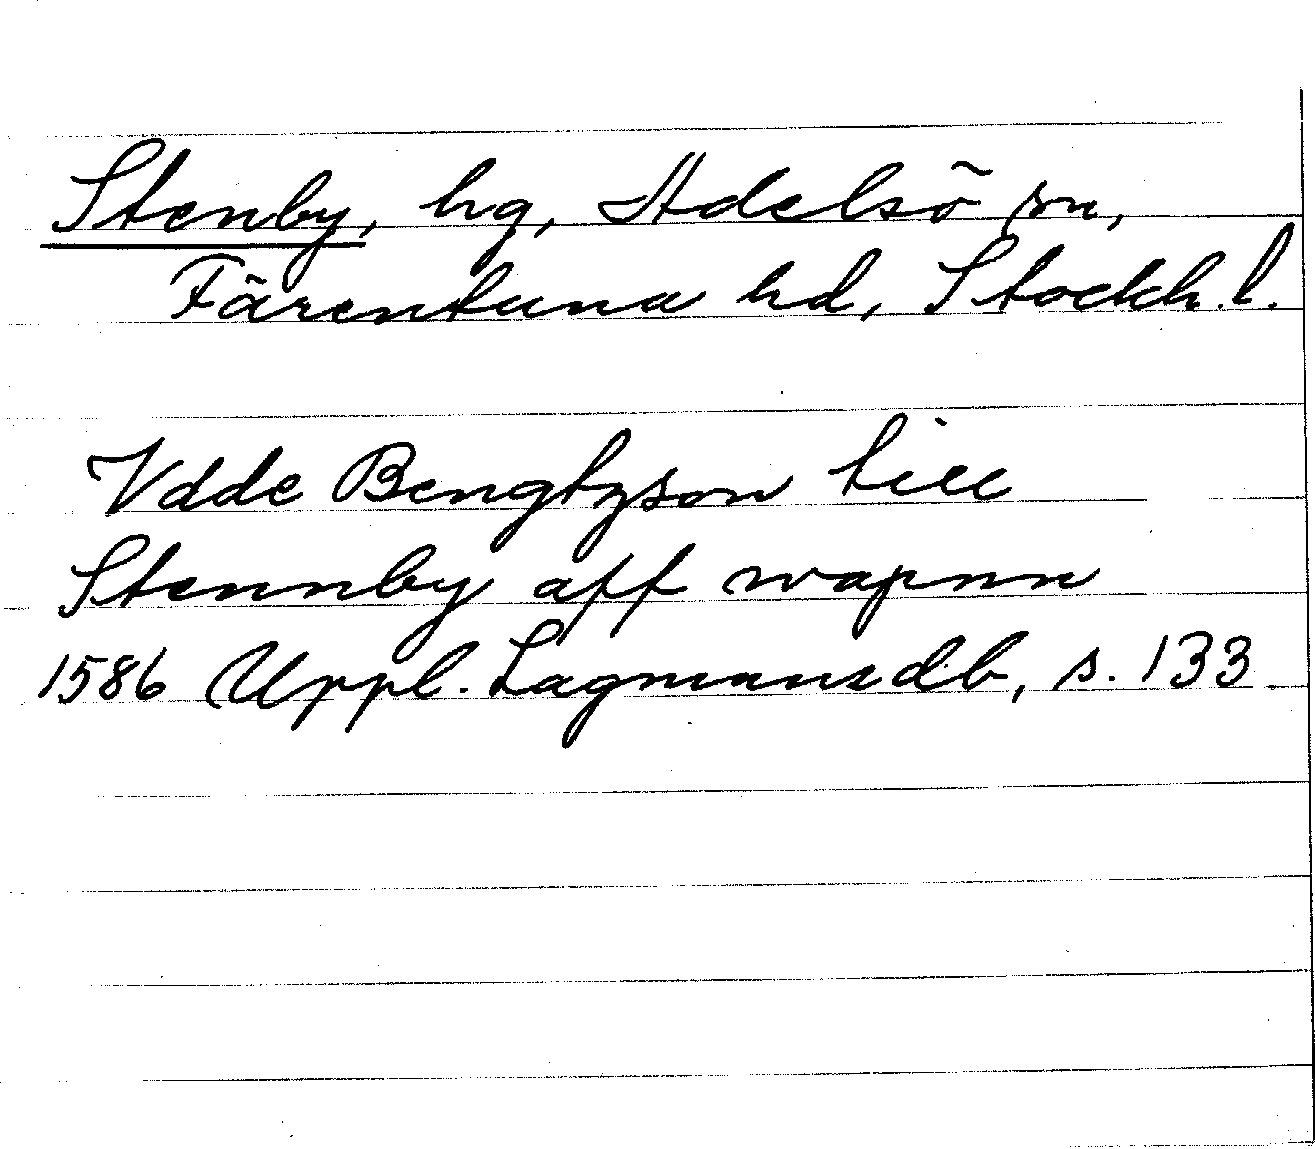 Stenby, hg, Adelsö sn,
Färentuna hd, Stockh. l.
Vdde Bengtzson till
Stennby aff wapnn
1586 Uppl. Lagmansdb, s. 133